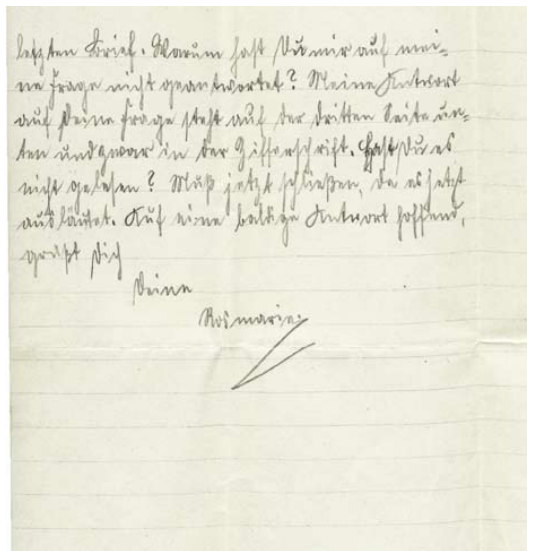 letzten Brief. Warum hast Du mir auf mei-
ne Frage nicht geantwortet? Meine Antwort
auf Deine Frage steht auf der dritten Seite un-
ten und zwar in der Zifferschrift. Hast Du es
nicht gelesen? Muß jetzt schließen, da es jetzt
aus läutet. Auf eine baldige Antwort hoffend,
grüßt Dich
Deine
Rosmarie.